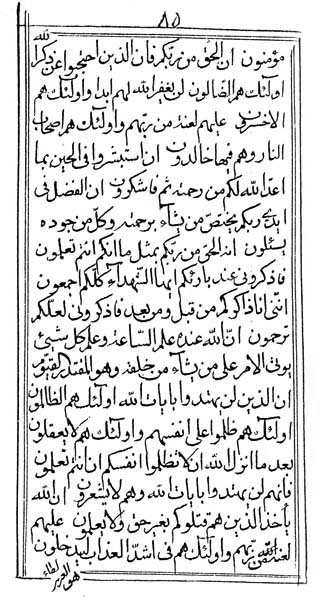 ٨٥
الله
مؤمنون ان الحق من ربكم فان الذين احتجبوا عن ذكرا
اولئك هم الضالون لن يغفر الله لهم ابدا واولئك هم
الاخسرون عليهم لعنة من ربهم واولئك هم اصحاب
النار وهم فيها خالدون ان استبشروا في الحين بما
اعد الله لكم من رحمته ثم فاشكرون ان الفضل في
ايدي ربكم يختص من يشاء برحمته وكل من جوده
يسئلون انه الحق من ربكم بمثل ما انكم انتم تعلمون
فاذكروني عند بارئكم ايها الشهداء كلكم اجمعون
انني انا ذاكركم من قبل ومن بعد فاذكروني لعلكم
ترحمون ان الله عنده علم الساعة وعلم كل شيئ
يؤتي الامر على من يشاء من خلقه وهو المقتدر القيوم
ان الذين لن يهتدوا بايات الله اولئك هم الظالمون
اولئك هم ظلموا على انفسهم واولئك هم لا يعقلون
بعد ما انزل الله ان لا تظلموا انفسكم ان انتم تعلمون
فانهم لن يهتدوا بايات الله وهم لا يشعرون ان الله
ياخذ الذين هم قتلوكم بغير حق ولا يعلمون عليهم
لعنة من الله ربهم واولئك هم في اشد العذاب ليدخلون
هو العزيز